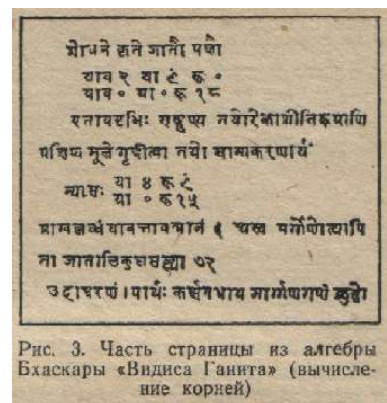 शोधने कृते जातौ पक्षौ
याव २ या ९ं रू ०
याव ० या ० रू १८
एतावष्टभिः सङ्गुण्य तयोरेकाशीतिरूपाणि
प्रक्षिप्य मूले गृहीत्वा तयोः साम्यकरणार्थं
न्यासः या ४ रू ९ं
या ० रू १५
प्राग्वल्लब्धं यावत्तावन्मानं ६ अस्य वर्गेणोत्थापि
ता जातालिकुलसङ्ख्या ७२
उदाहरणं । पार्थः कर्णवधाय मार्गणगणं क्रुद्धो
Рис. 3. Часть страницы из алгебры
Бхаскары «Видиса Ганита» (вычисле-
ние корней)